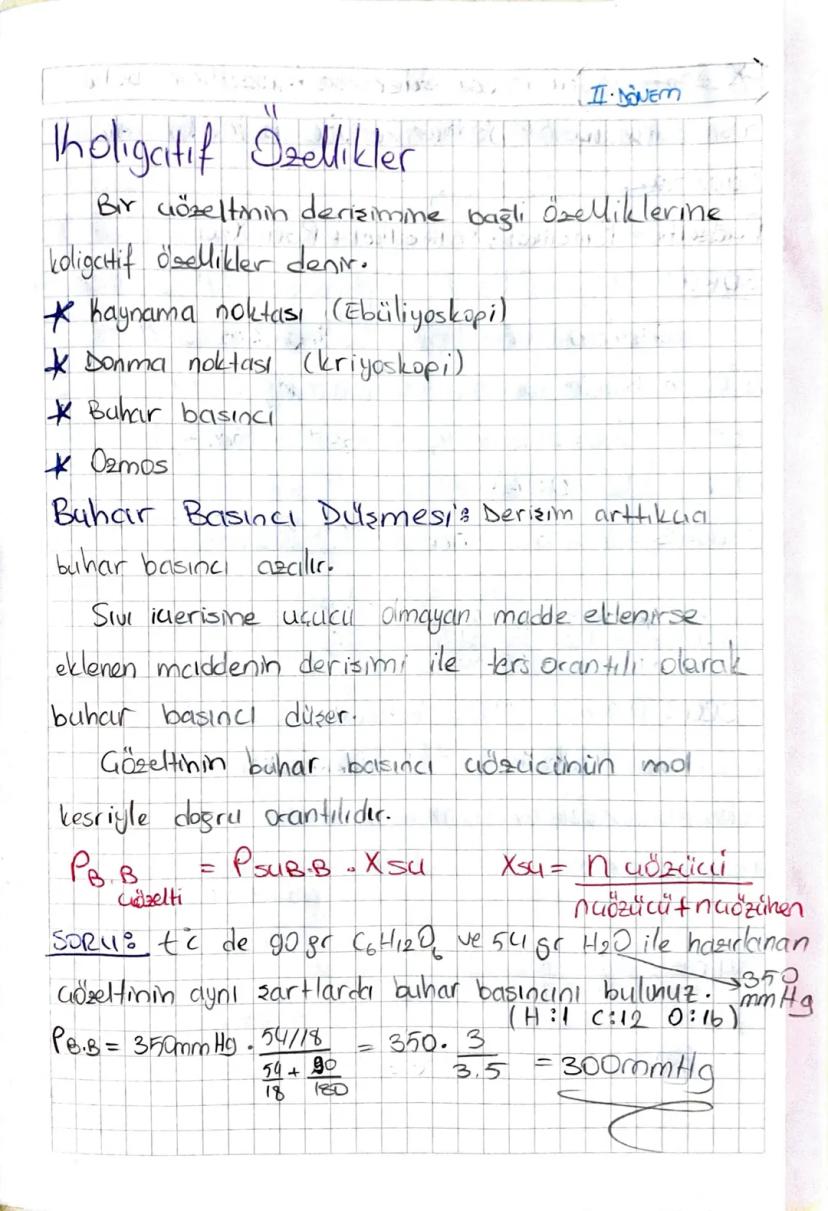 II. DÖNEM
Koligatif Özellikler
Bir çözeltinin derişimine bağlı özelliklerine
koligatif özellikler denir.
* Kaynama noktası (Ebüliyoskopi)
* Donma noktası (kriyoskopi)
* Buhar basıncı
* Ozmos
Buhar Basıncı Düşmesi: Derişim arttıkça
buhar basıncı azalır.
Sıvı içerisine uçucu olmayan madde eklenirse
eklenen maddenin derişimi ile ters orantılı olarak
buhar basıncı düşer.
Çözeltinin buhar basıncı çözücünün mol
kesriyle doğru orantılıdır.
P_B.B çözelti = P_SU B.B . X_SU   X_SU = n çözücü / n çözücü + n çözünen
SORU: t°c de 90 gr C6H12O6 ve 54 gr H2O ile hazırlanan
→ 350 mmHg
çözeltinin aynı şartlarda buhar basıncını bulunuz.
(H:1 C:12 O:16)
P_B.B = 350mmHg . 54/18 / (54/18 + 90/180) = 350. 3/3.5 = 300mmHg